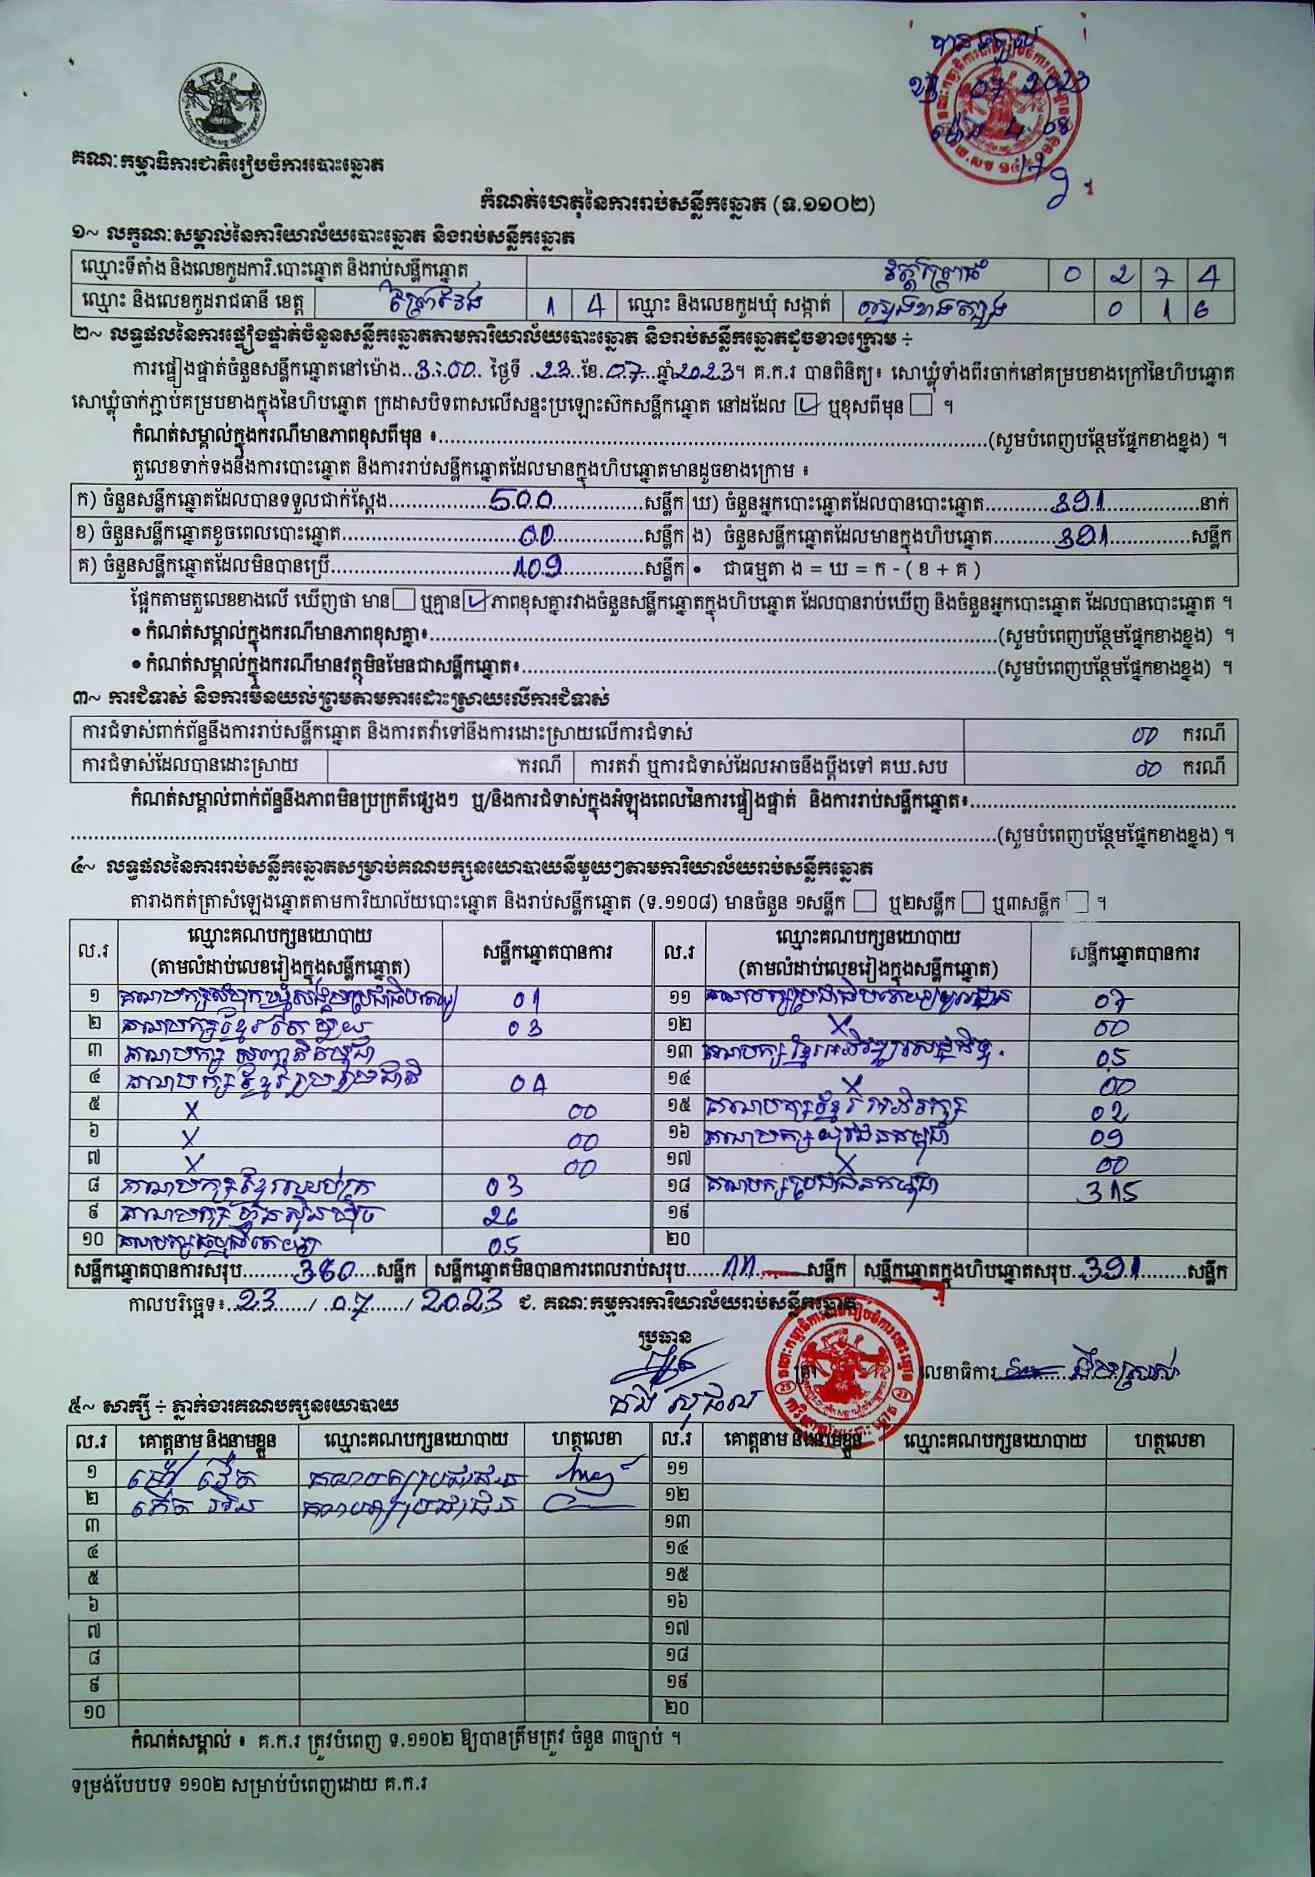 បានទទួល
23 07 2023
ម៉ោង 4:08
គណៈកម្មាធិការជាតិរៀបចំការបោះឆ្នោត
កំណត់ហេតុនៃការរាប់សន្លឹកឆ្នោត (ទ.១១០២)
១~ លក្ខណៈសម្គាល់នៃការិយាល័យបោះឆ្នោត និងរាប់សន្លឹកឆ្នោត
ឈ្មោះទីតាំង និងលេខកូដការិ.បោះឆ្នោត និងរាប់សន្លឹកឆ្នោត 0 2 7 4
ឈ្មោះ និងលេខកូដរាជធានី ខេត្ត ព្រៃវែង 1 4 ឈ្មោះ និងលេខកូដឃុំ សង្កាត់ 0 1 6
២~ លទ្ធផលនៃការផ្ទៀងផ្ទាត់ចំនួនសន្លឹកឆ្នោតតាមការិយាល័យបោះឆ្នោត និងរាប់សន្លឹកឆ្នោតដូចខាងក្រោម ÷
ការផ្ទៀងផ្ទាត់ចំនួនសន្លឹកឆ្នោតនៅម៉ោង..3:00.. ថ្ងៃទី ..23..ខែ..07..ឆ្នាំ2023។ គ.ក.រ បានពិនិត្យ៖ សោឃ្លុំទាំងពីរចាក់នៅគម្របខាងក្រៅនៃហិបឆ្នោត
សោឃ្លុំចាក់ភ្ជាប់គម្របខាងក្នុងនៃហិបឆ្នោត ក្រដាសបិទពាសលើសន្ទះប្រឡោះស៊កសន្លឹកឆ្នោត នៅដដែល ☑ ឬខុសពីមុន ☐ ។
កំណត់សម្គាល់ក្នុងករណីមានភាពខុសពីមុន ៖..........(សូមបំពេញបន្ថែមផ្នែកខាងខ្នង) ។
តួលេខទាក់ទងនឹងការបោះឆ្នោត និងការរាប់សន្លឹកឆ្នោតដែលមានក្នុងហិបឆ្នោតមានដូចខាងក្រោម ៖
ក) ចំនួនសន្លឹកឆ្នោតដែលបានទទួលជាក់ស្តែង..........500..........សន្លឹក ឃ) ចំនួនអ្នកបោះឆ្នោតដែលបានបោះឆ្នោត..........391..........នាក់
ខ) ចំនួនសន្លឹកឆ្នោតខូចពេលបោះឆ្នោត..........00..........សន្លឹក ង) ចំនួនសន្លឹកឆ្នោតដែលមានក្នុងហិបឆ្នោត..........391..........សន្លឹក
គ) ចំនួនសន្លឹកឆ្នោតដែលមិនបានប្រើ..........109..........សន្លឹក • ជាធម្មតា ង = ឃ = ក - ( ខ + គ )
ផ្អែកតាមតួលេខខាងលើ ឃើញថា មាន☐ ឬគ្មាន☑ ភាពខុសគ្នារវាងចំនួនសន្លឹកឆ្នោតក្នុងហិបឆ្នោត ដែលបានរាប់ឃើញ និងចំនួនអ្នកបោះឆ្នោត ដែលបានបោះឆ្នោត ។
• កំណត់សម្គាល់ក្នុងករណីមានភាពខុសគ្នា៖..........(សូមបំពេញបន្ថែមផ្នែកខាងខ្នង) ។
• កំណត់សម្គាល់ក្នុងករណីមានវត្ថុមិនមែនជាសន្លឹកឆ្នោត៖..........(សូមបំពេញបន្ថែមផ្នែកខាងខ្នង) ។
៣~ ការជំទាស់ និងការមិនយល់ព្រមតាមការដោះស្រាយលើការជំទាស់
ការជំទាស់ពាក់ព័ន្ធនឹងការរាប់សន្លឹកឆ្នោត និងការតវ៉ាទៅនឹងការដោះស្រាយលើការជំទាស់ 00 ករណី
ការជំទាស់ដែលបានដោះស្រាយ ករណី ការតវ៉ា ឬការជំទាស់ដែលអាចនឹងប្តឹងទៅ គឃ.សប 00 ករណី
កំណត់សម្គាល់ពាក់ព័ន្ធនឹងភាពមិនប្រក្រតីផ្សេងៗ ឬ/និងការជំទាស់ក្នុងអំឡុងពេលនៃការផ្ទៀងផ្ទាត់ និងការរាប់សន្លឹកឆ្នោត៖..........
..........(សូមបំពេញបន្ថែមផ្នែកខាងខ្នង) ។
៤~ លទ្ធផលនៃការរាប់សន្លឹកឆ្នោតសម្រាប់គណបក្សនយោបាយនីមួយៗតាមការិយាល័យរាប់សន្លឹកឆ្នោត
តារាងកត់ត្រាសំឡេងឆ្នោតតាមការិយាល័យបោះឆ្នោត និងរាប់សន្លឹកឆ្នោត (ទ.១១០៨) មានចំនួន ១សន្លឹក ☐ ឬ២សន្លឹក ☐ ឬ៣សន្លឹក ☐ ។
ល.រ ឈ្មោះគណបក្សនយោបាយ (តាមលំដាប់លេខរៀងក្នុងសន្លឹកឆ្នោត) សន្លឹកឆ្នោតបានការ ល.រ ឈ្មោះគណបក្សនយោបាយ (តាមលំដាប់លេខរៀងក្នុងសន្លឹកឆ្នោត) សន្លឹកឆ្នោតបានការ
១ គណបក្សសំបុកឃ្មុំសង្គមប្រជាធិបតេយ្យ 01 ១១ គណបក្សប្រជាធិបតេយ្យមូលដ្ឋាន 07
២ គណបក្សខ្មែររួបរួម 03 ១២ X 00
៣ គណបក្ស សញ្ជាតិកម្ពុជា ១៣ គណបក្សខ្មែរអភិវឌ្ឍន៍សេដ្ឋកិច្ច 05
៤ គណបក្សខ្មែររួបរួមជាតិ 04 ១៤ X 00
៥ X 00 ១៥ គណបក្សខ្មែរ អភិរក្ស 02
៦ X 00 ១៦ គណបក្សយុវជនកម្ពុជា 09
៧ X 00 ១៧ X 00
៨ គណបក្សខ្មែរឈប់ក្រ 03 ១៨ គណបក្សប្រជាជនកម្ពុជា 315
៩ គណបក្សហ៊្វុនស៊ិនប៉ិច 26 ១៩
១០ គណបក្សធម្មាធិបតេយ្យ 05 ២០
សន្លឹកឆ្នោតបានការសរុប........380....សន្លឹក សន្លឹកឆ្នោតមិនបានការពេលរាប់សរុប.......11......សន្លឹក សន្លឹកឆ្នោតក្នុងហិបឆ្នោតសរុប..391........សន្លឹក
កាលបរិច្ឆេទ៖..23....../..07....../ 2023 ជ. គណៈកម្មការការិយាល័យរាប់សន្លឹកឆ្នោត
ប្រធាន
លេខាធិការ
៥~ សាក្សី ÷ ភ្នាក់ងារគណបក្សនយោបាយ
ល.រ គោត្តនាម និងនាមខ្លួន ឈ្មោះគណបក្សនយោបាយ ហត្ថលេខា ល.រ គោត្តនាម និងនាមខ្លួន ឈ្មោះគណបក្សនយោបាយ ហត្ថលេខា
១ គណបក្សប្រជាជន ១១
២ គណបក្សប្រជាជន ១២
៣ ១៣
៤ ១៤
៥ ១៥
៦ ១៦
៧ ១៧
៨ ១៨
៩ ១៩
១០ ២០
កំណត់សម្គាល់ ៖ គ.ក.រ ត្រូវបំពេញ ទ.១១០២ ឱ្យបានត្រឹមត្រូវ ចំនួន ៣ច្បាប់ ។
ទម្រង់បែបបទ ១១០២ សម្រាប់បំពេញដោយ គ.ក.រ